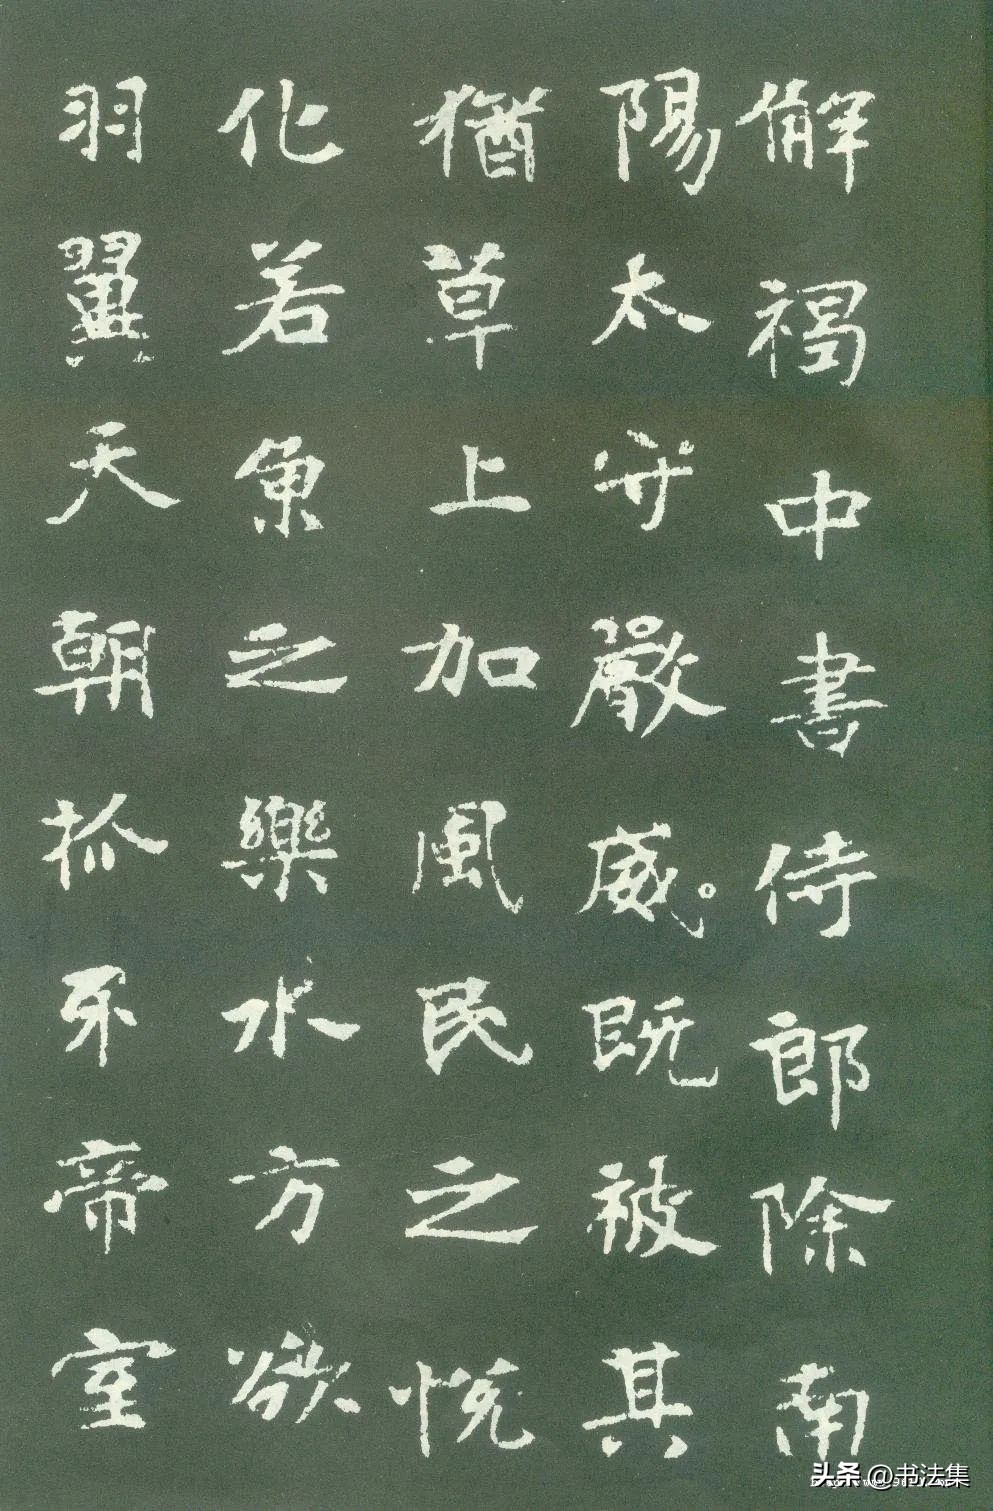 解褐中書侍郎除南
陽太守嚴威。既被其
猶草上加風民之悅
化若魚之樂水方欲
羽翼天朝抓牙帝室
头条 @书法集